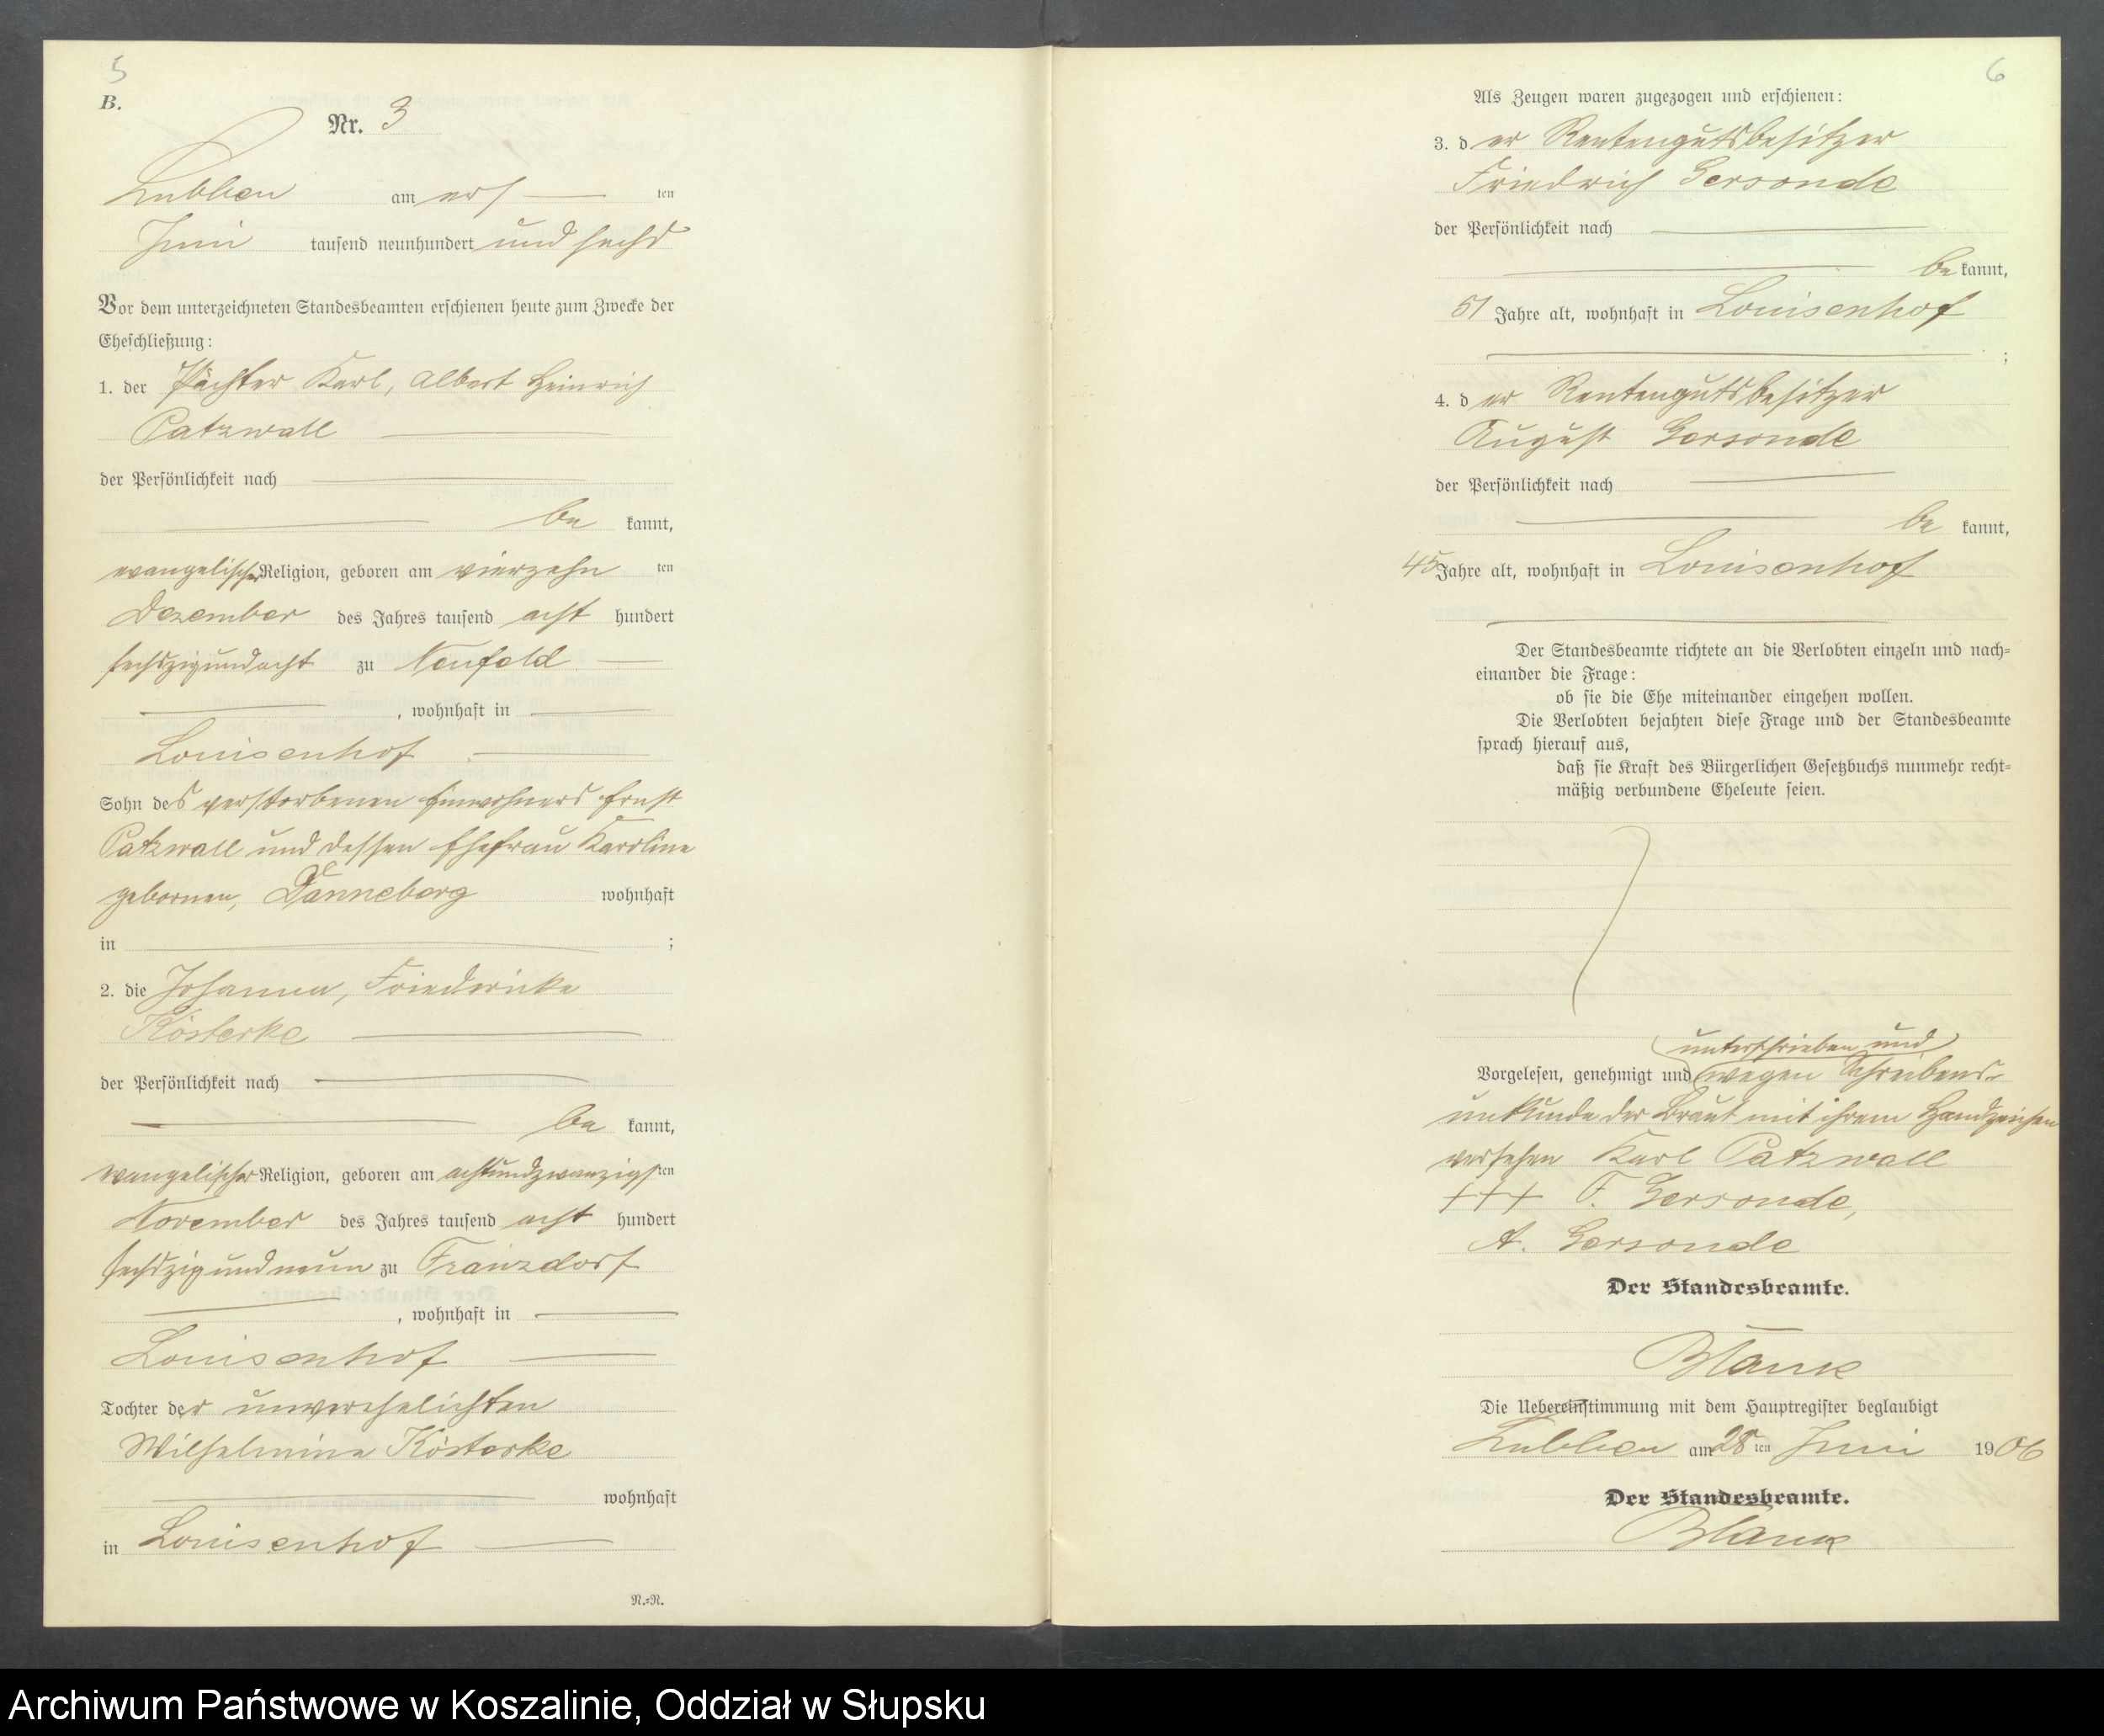 5
B.
Nr. 3
Lubben am ers ten
Juni tausend neunhundert und sechs
Vor dem unterzeichneten Standesbeamten erschienen heute zum Zwecke der
Eheschließung:
1. der Pächter Karl, Albert Heinrich
Patzwall
der Persönlichkeit nach
be kannt,
evangelischer Religion, geboren am vierzehn ten
Dezember des Jahres tausend acht hundert
sechszigundacht zu Neufeld
, wohnhaft in
Louisenhof
Sohn des verstorbenen Einwohners Ernst
Patzwall und dessen Ehefrau Karoline
gebornen, Danneberg wohnhaft
in ;
2. die Johanna, Friedericke
Kösterke
der Persönlichkeit nach
be kannt,
evangelischer Religion, geboren am achtundzwanzigsten
November des Jahres tausend acht hundert
sechszigundneun zu Franzdorf
, wohnhaft in
Louisenhof
Tochter der unverehelichten
Wilhelmine Kösterke
wohnhaft
in Louisenhof
N.=N.
6
Als Zeugen waren zugezogen und erschienen:
3. der Rentengutsbesitzer
Friedrich Gersonde
der Persönlichkeit nach
be kannt,
51 Jahre alt, wohnhaft in Louisenhof
;
4. der Rentengutsbesitzer
August Gersonde
der Persönlichkeit nach
be kannt,
45 Jahre alt, wohnhaft in Louisenhof
Der Standesbeamte richtete an die Verlobten einzeln und nach=
einander die Frage:
ob sie die Ehe miteinander eingehen wollen.
Die Verlobten bejahten diese Frage und der Standesbeamte
sprach hierauf aus,
daß sie Kraft des Bürgerlichen Gesetzbuchs nunmehr recht=
mäßig verbundene Eheleute seien.
unterschrieben und
Vorgelesen, genehmigt und wegen Schreibens-
unkunde der Braut mit ihrem Handzeichen
versehen Karl Patzwall
+++ F. Gersonde,
A. Gersonde
Der Standesbeamte.
Blank
Die Uebereinstimmung mit dem Hauptregister beglaubigt
Lubben am 28 ten Juni 1906
Der Standesbeamte.
Blank
Archiwum Państwowe w Koszalinie, Oddział w Słupsku